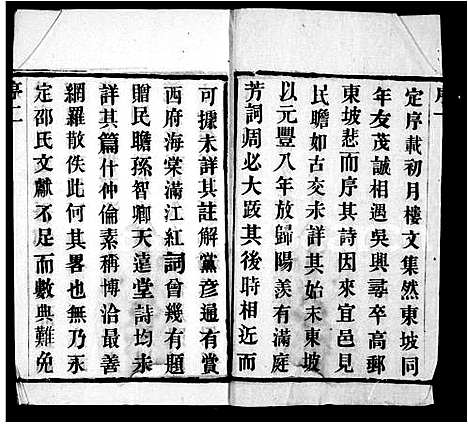 定序載初月樓文集然東坡同
年友茂誠相遇吳興尋卒高郵
東坡悲而序其詩因來宜邑見
民瞻如古交未詳其始末東坡
以元豐八年放歸陽羨有滿庭
芳詞周必大跋其後時相近而
可據未詳其註解黨彥通有賞
西府海棠滿江紅詞曾幾有題
贈民瞻孫智卿天遠堂詩均未
詳其篇什仲倫素稱博洽最善
網羅散佚此何其畧也無乃永
定邵氏文獻不足而數典難免
序二